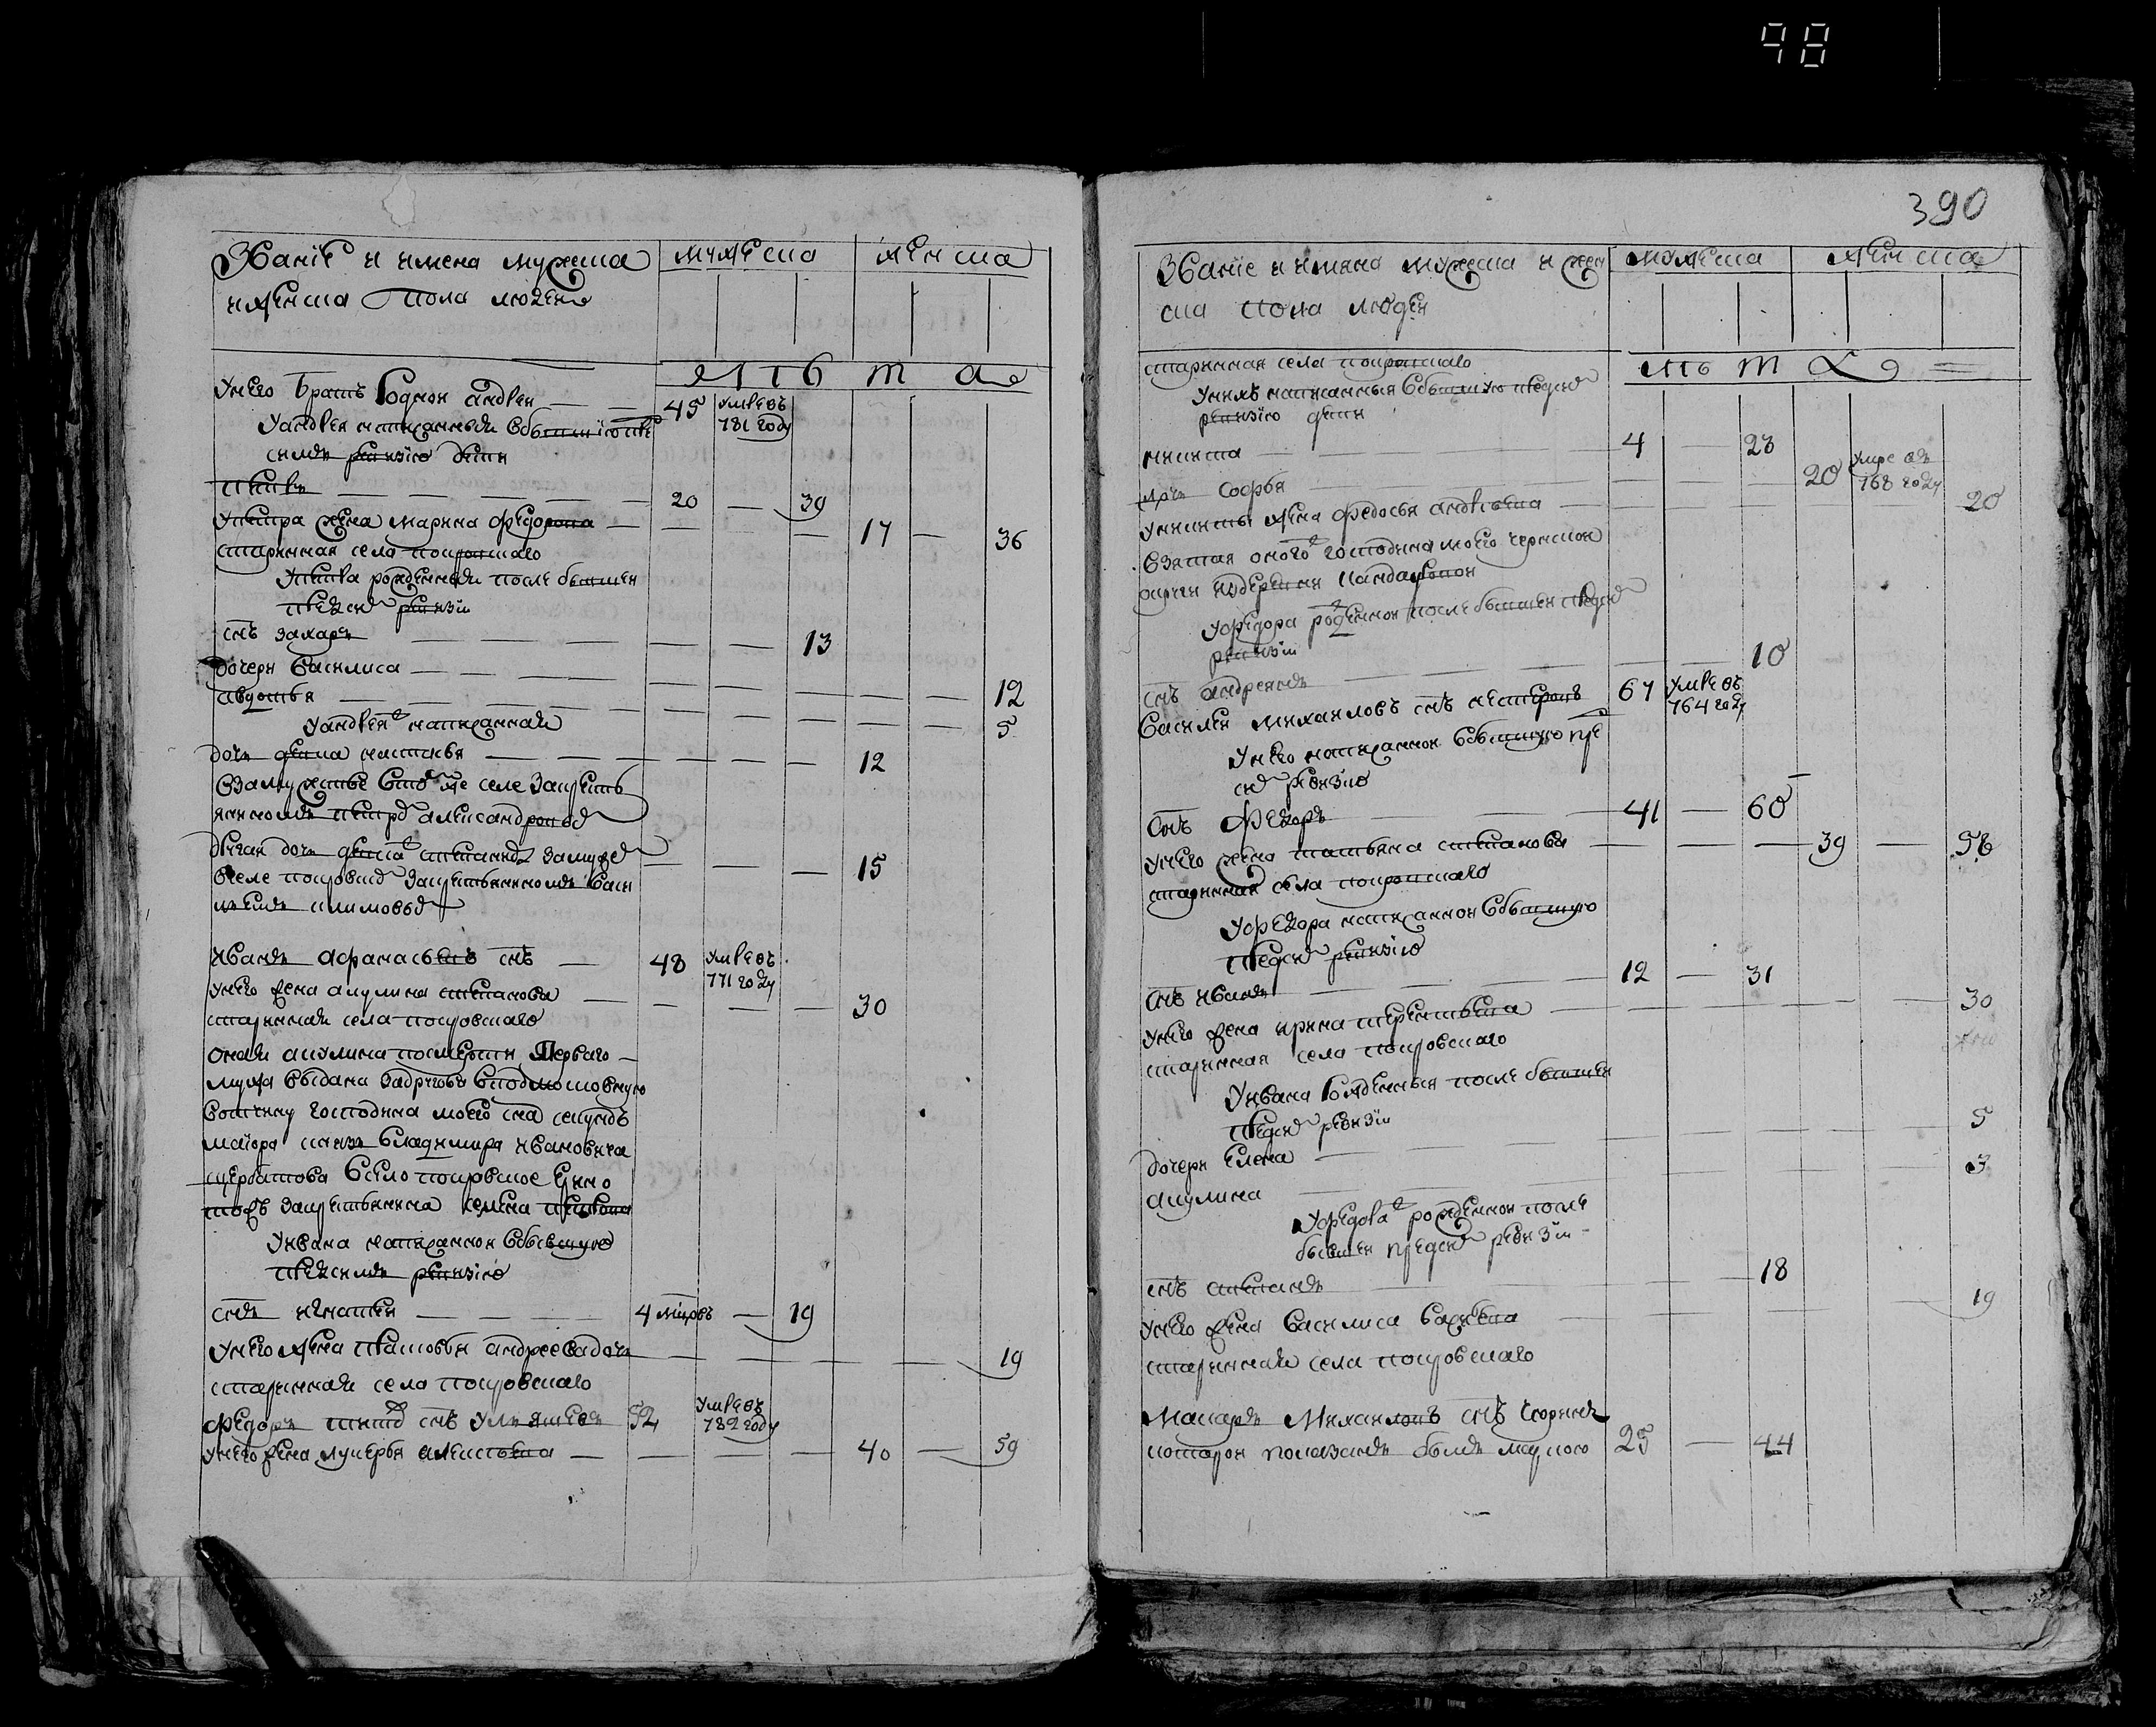 98
390
Званїе и имена мужеска
и женска пола людей
мужеска
женска
лѣта
У него братъ Родион андреи
45
умре въ
781 году
У андрея написанныя в бывшую пре
снюю ревизїю дети
20
39
У петра жена марина федорова
17
36
старинная села покровскаго
У петра рожденныя после бывшей
пред сей ревизїи
снъ захаръ
13
дочери василиса
12
авдотья
5
У андрея написанная
дочь девка настасья
12
взамужстве в том же селе за крестья
нином петром александровым
другая дочь девка степанида замужем
15
в селе покровском за крестьянином васи
льем климовым
иван афанасьевъ снъ
48
умре въ
771 году
У него жена акулина степанова
30
старинная села покровскаго
оная акулина посмерти перваго
мужа выдана в другову в подмосковную
вотчину господина моего сна секундъ
маїора князь владимира ивановича
щербатова в село покровское
тожъ за крестьянина семена петрова
У ивана написанной в бывшую
пред сим ревизїю
снъ игнатей
4
19
У него жена прасковья андреева дочь
19
старинная села покровскаго
федоръ снъ
52
умре въ
782 году
У него жена лукерья алексеева
40
59
Званїе и имяна мужеска и жен
ска пола людей
мужеска
женска
лѣта
старинная села покровскаго
У них написанныя в бывшую пред сей
ревизїю дети
никита
4
23
дочь софья
20
умре въ
768 году
У никиты жена федосья андреева
20
взятая оного господина моего
деревни
У федора рожденной после бывшей пред сей
ревизїи
снъ андреян
10
Василей михаиловъ снъ нестеровъ
67
умре въ
764 году
У него написанной в бывшую пре
сей ревизїю
снъ Федоръ
41
60
У него жена татьяна степанова
39
58
старинная села покровскаго
У федора написанной в бывшую
пред сей ревизїю
снъ иван
12
31
У него жена ирина терентьева
30
старинная села покровскаго
У ивана рожденныя после бывшей
пред сей ревизїи
дочери елена
5
акулина
3
У федора рожденной после
бывшей пред сей ревизїи
снъ степан
18
У него жена василиса
19
старинная села покровскаго
макаръ михаиловъ снъ
которой показан был малого
25
44